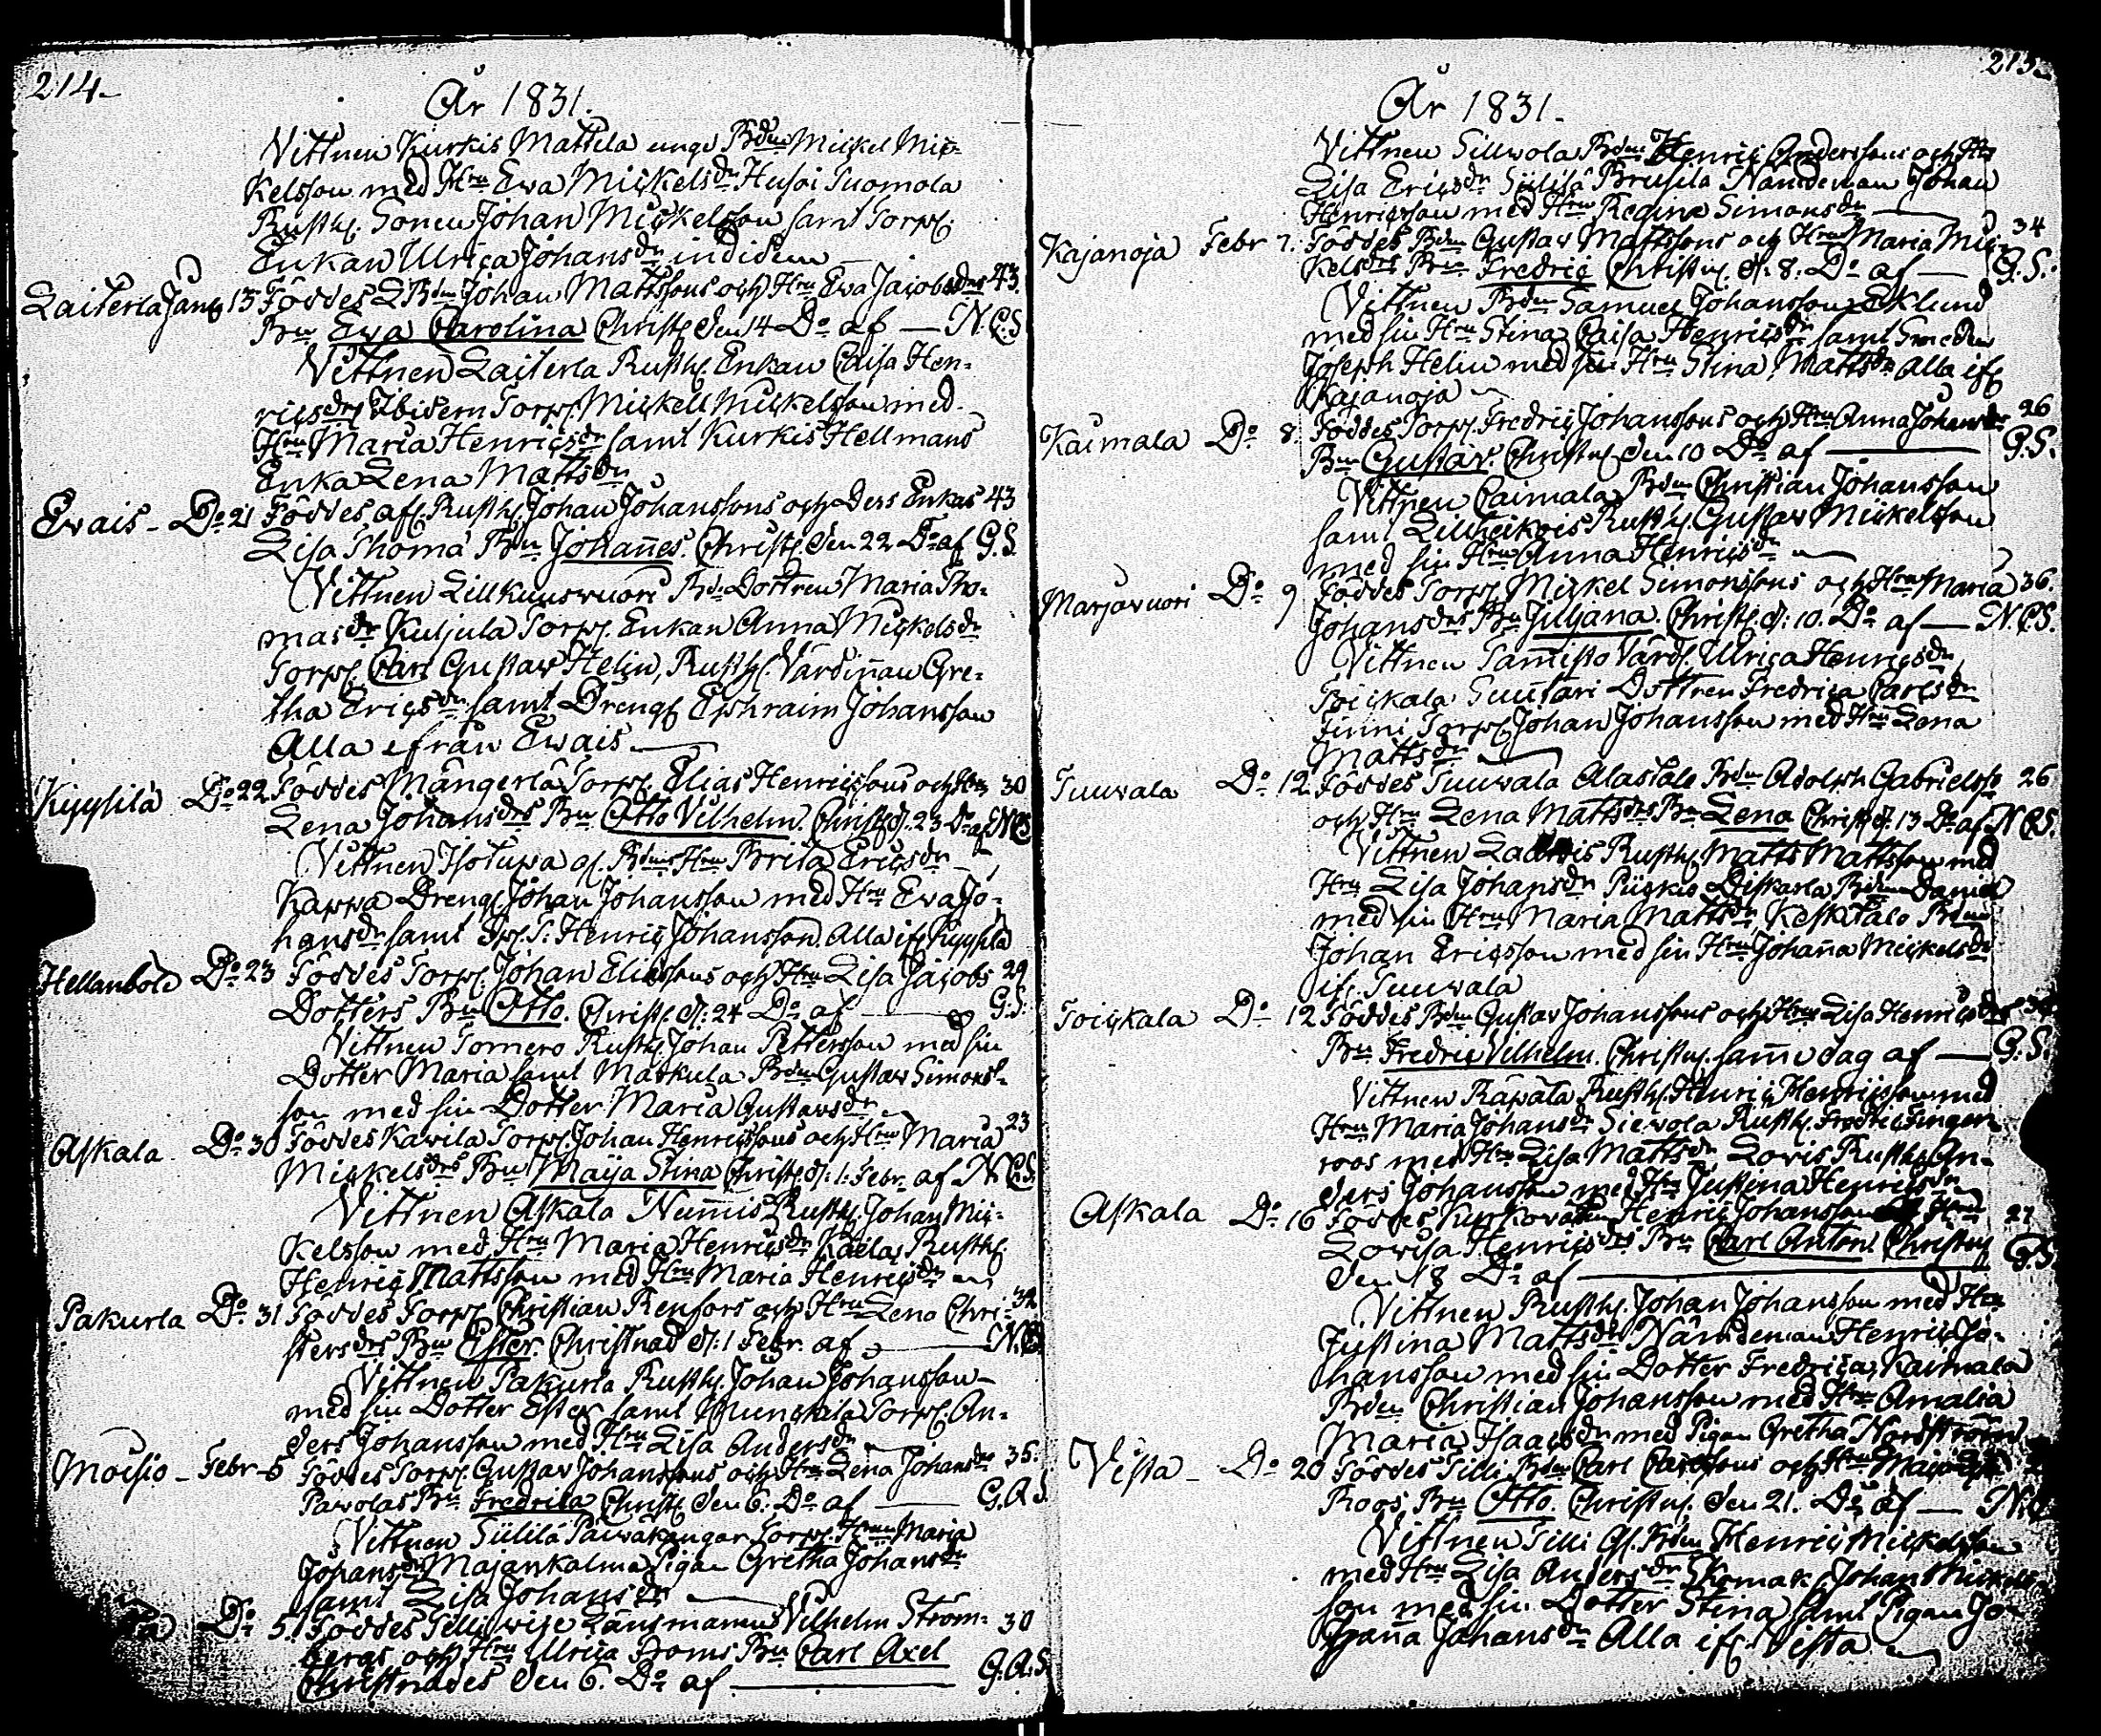 214.
År 1831.
Vittnen Kurkis Mattila unge Bdn Mickel Mic-
kelsson med Hru Ewa Mickelsdr Husoi Tuomola
Rusth. Sonen Johan Mickelsson samt Torp.
Enkan Ulrica Johansdr indidem
Laiterla Jan. 13 Föddes Bdn Johan Mattssons och Hru Ewa Jacobsdrs 43.
Bn Ewa Carolina Christ. den 14 Do af — N.C.S
Vittnen Laiterla Rusth. Enkan Caisa Hen-
ricsdr Ibidem Torp. Mickell Mickelsson med
Hru Maria Henricsdr samt Kurkis Hellmans
Enka Lena Mattsdr
Ewais - Do 21 Föddes afl. Rusth. Johan Johanssons och dess Enkas 43
Lisa Thoma Bn Johannes. Christ. den 22 Do af G.S.
Vittnen Lillkunswuori Bd. Dottren Maria Tho-
masdr Kuljula Torp. Enkan Anna Mickelsdr
Torp. Carl Gustav Helin, Rusth. Värdinnan Gre-
tha Ericsdr samt Dreng. Ephraim Johansson
Alla ifrån Ewais
Kyysilä Do 22 Föddes Mångerlä Torp. Elias Henricssons och Hru 30
Lena Johansdrs Bn Otto Vilhelm. Christ. d. 23 Do af N.C.S
Vittnen Isotupa gl. Bdns Hru Brita Ericsdr
Kappa Dreng. Johan Johansson med Hru Ewa Jo-
hansdr samt Henric Johansson. Alla if. Kyysilä
Hellanbole Do 23 Föddes Torp. Johan Eliassons och Hru Lisa Jacobs 29
Dotters Bn Otto. Christ. d. 24 Do af — G.S.
Vittnen Tomero Rusth. Johan Pettersson med sin
Dotter Maria samt Markula Bdn Gustav Simons-
son med sin Dotter Maria Gustavsdr
Askala Do 30 Föddes Kawila Torp. Johan Henricssons och Hru Maria 23
Mickelsdrs Bn Maija Stina Christ. d. 1. Febr. af N.C.S
Vittnen Askala Nummis Rusth. Johan Mic-
kelsson med Hru Maria Henricsdr Kaela Rusth.
Henric Mattsson med Hru Maria Henricsdr
Pakurla Do 31 Föddes Torp. Christian Renfors och Hru Lena Chri- 32
stersdrs Bn Ester. Christnad d. 1 Febr. af — N.C.S
Vittnen Pakurla Rusth. Johan Johansson
med sin Dotter Ester samt Torp. An-
ders Johansson med Hru Lisa Andersdr
Moisio - Febr 5 Föddes Torp. Gustav Johanssons och Hru Lena Johansdr 35.
Pawolas Bn Fredrika Christ. den 6. Do af — G.A.S
Vittnen Siililä Torp. Hru Maria
Johansdr Majankalma Pigan Gretha Johansdr
samt Lisa Johansdr
Do 5. Föddes Vice Länsmannen Vilhelm Ström- 30
bergs och Hru Ulrica Froms Bn Carl Axel
Christnades den 6. Do af — G.A.S
215.
År 1831.
Vittnen Sillwola Bdn Henric Anderssons och Hru
Lisa Ericsdr Siililä Brusila Nämdeman Johan
Henricsson med Hru Regina Simonsdr
Kajanoja Febr 7. Föddes Bdn Gustav Mattssons och Hru Maria Mic- 34
kelsdrs Bn Fredric Christn. d. 8. Do af — G.S.
Vittnen Bdn Samuel Johansson Eklund
med sin Hru Stina Caisa Henricsdr samt Smeden
Joseph Helin med sin Hru Stina Mattsdr Alla if.
Kajanoja
Kaimala Do 8 Föddes Torp. Fredric Johanssons och Hru Anna Johansdr 26
Bn Gustav. Christn. den 10 Do af — G.S.
Vittnen Caimala Bdn Christian Johansson
samt Lillheikois Rusth. Gustav Mickelsson
med sin Hru Anna Henricsdr
Marjavuori Do 9 Föddes Torp. Mickel Simonssons och Hru Maria 36.
Johansdrs Bn Juljana. Christ. d. 10. Do af — N.C.S.
Vittnen Tammisto Värd. Ulrica Henricsdr
Toickala Suutari Dottren Fredrica Carlsdr
Finni Torp. Johan Johansson med Hru Lena
Mattsdr
Tuuvala Do 12 Föddes Tuuvala Alastalo Bdn Adolph Gabrielsso 26
och Hru Lena Mattsdrs Bn Lena Christ. d. 13 Do af N.C.S.
Vittnen Rusth. Matts Mattsson med
Hru Lisa Johansdr Piiskis Diskarla Bdn Daniel
med sin Hru Maria Mattsdr Keskitalo Bdn
Johan Ericsson med sin Hru Johanna Mickelsdr
if. Tuuvala
Toickala Do 12 Föddes Bdn Gustav Johanssons och Hru Lisa Henricsdrs
Bn Fredric Vilhelm. Christn. samma dag af — G.S.
Vittnen Rapala Rusth. Henric Henricsson med
Hru Maria Johansdr Siewola Rusth. Fredric Finger-
roos med Hru Lisa Mattsdr Lovis Rusth. An-
ders Johansson med Hru Justina Henricsdr
Askala Do 16 Föddes Henric Johansson Hru 27
Lowisa Henricsdrs Bn Carl Anton. Christn.
den 18 Do af — G.S.
Vittnen Rusth. Johan Johansson med Hru
Justina Mattsdr Nämdeman Henric Jo-
hansson med sin Dotter Fredrica, Kaimala
Bdn Christian Johansson med Hru Amalia
Maria Isaacsdr med Pigan Gretha Nordström
Vista - Do 20 Föddes Tilli Bdn Carl Carlssons och Hru
Roos Bn Otto. Christn. den 21. Do af — N.C.
Vittnen Tilli Gl. Bdn Henric Mickelsson
med Hru Lisa Andersdr Skomak. Johan Mickels-
son med sin Dotter Stina samt Pigan Jo-
hanna Johansdr Alla if. Vista